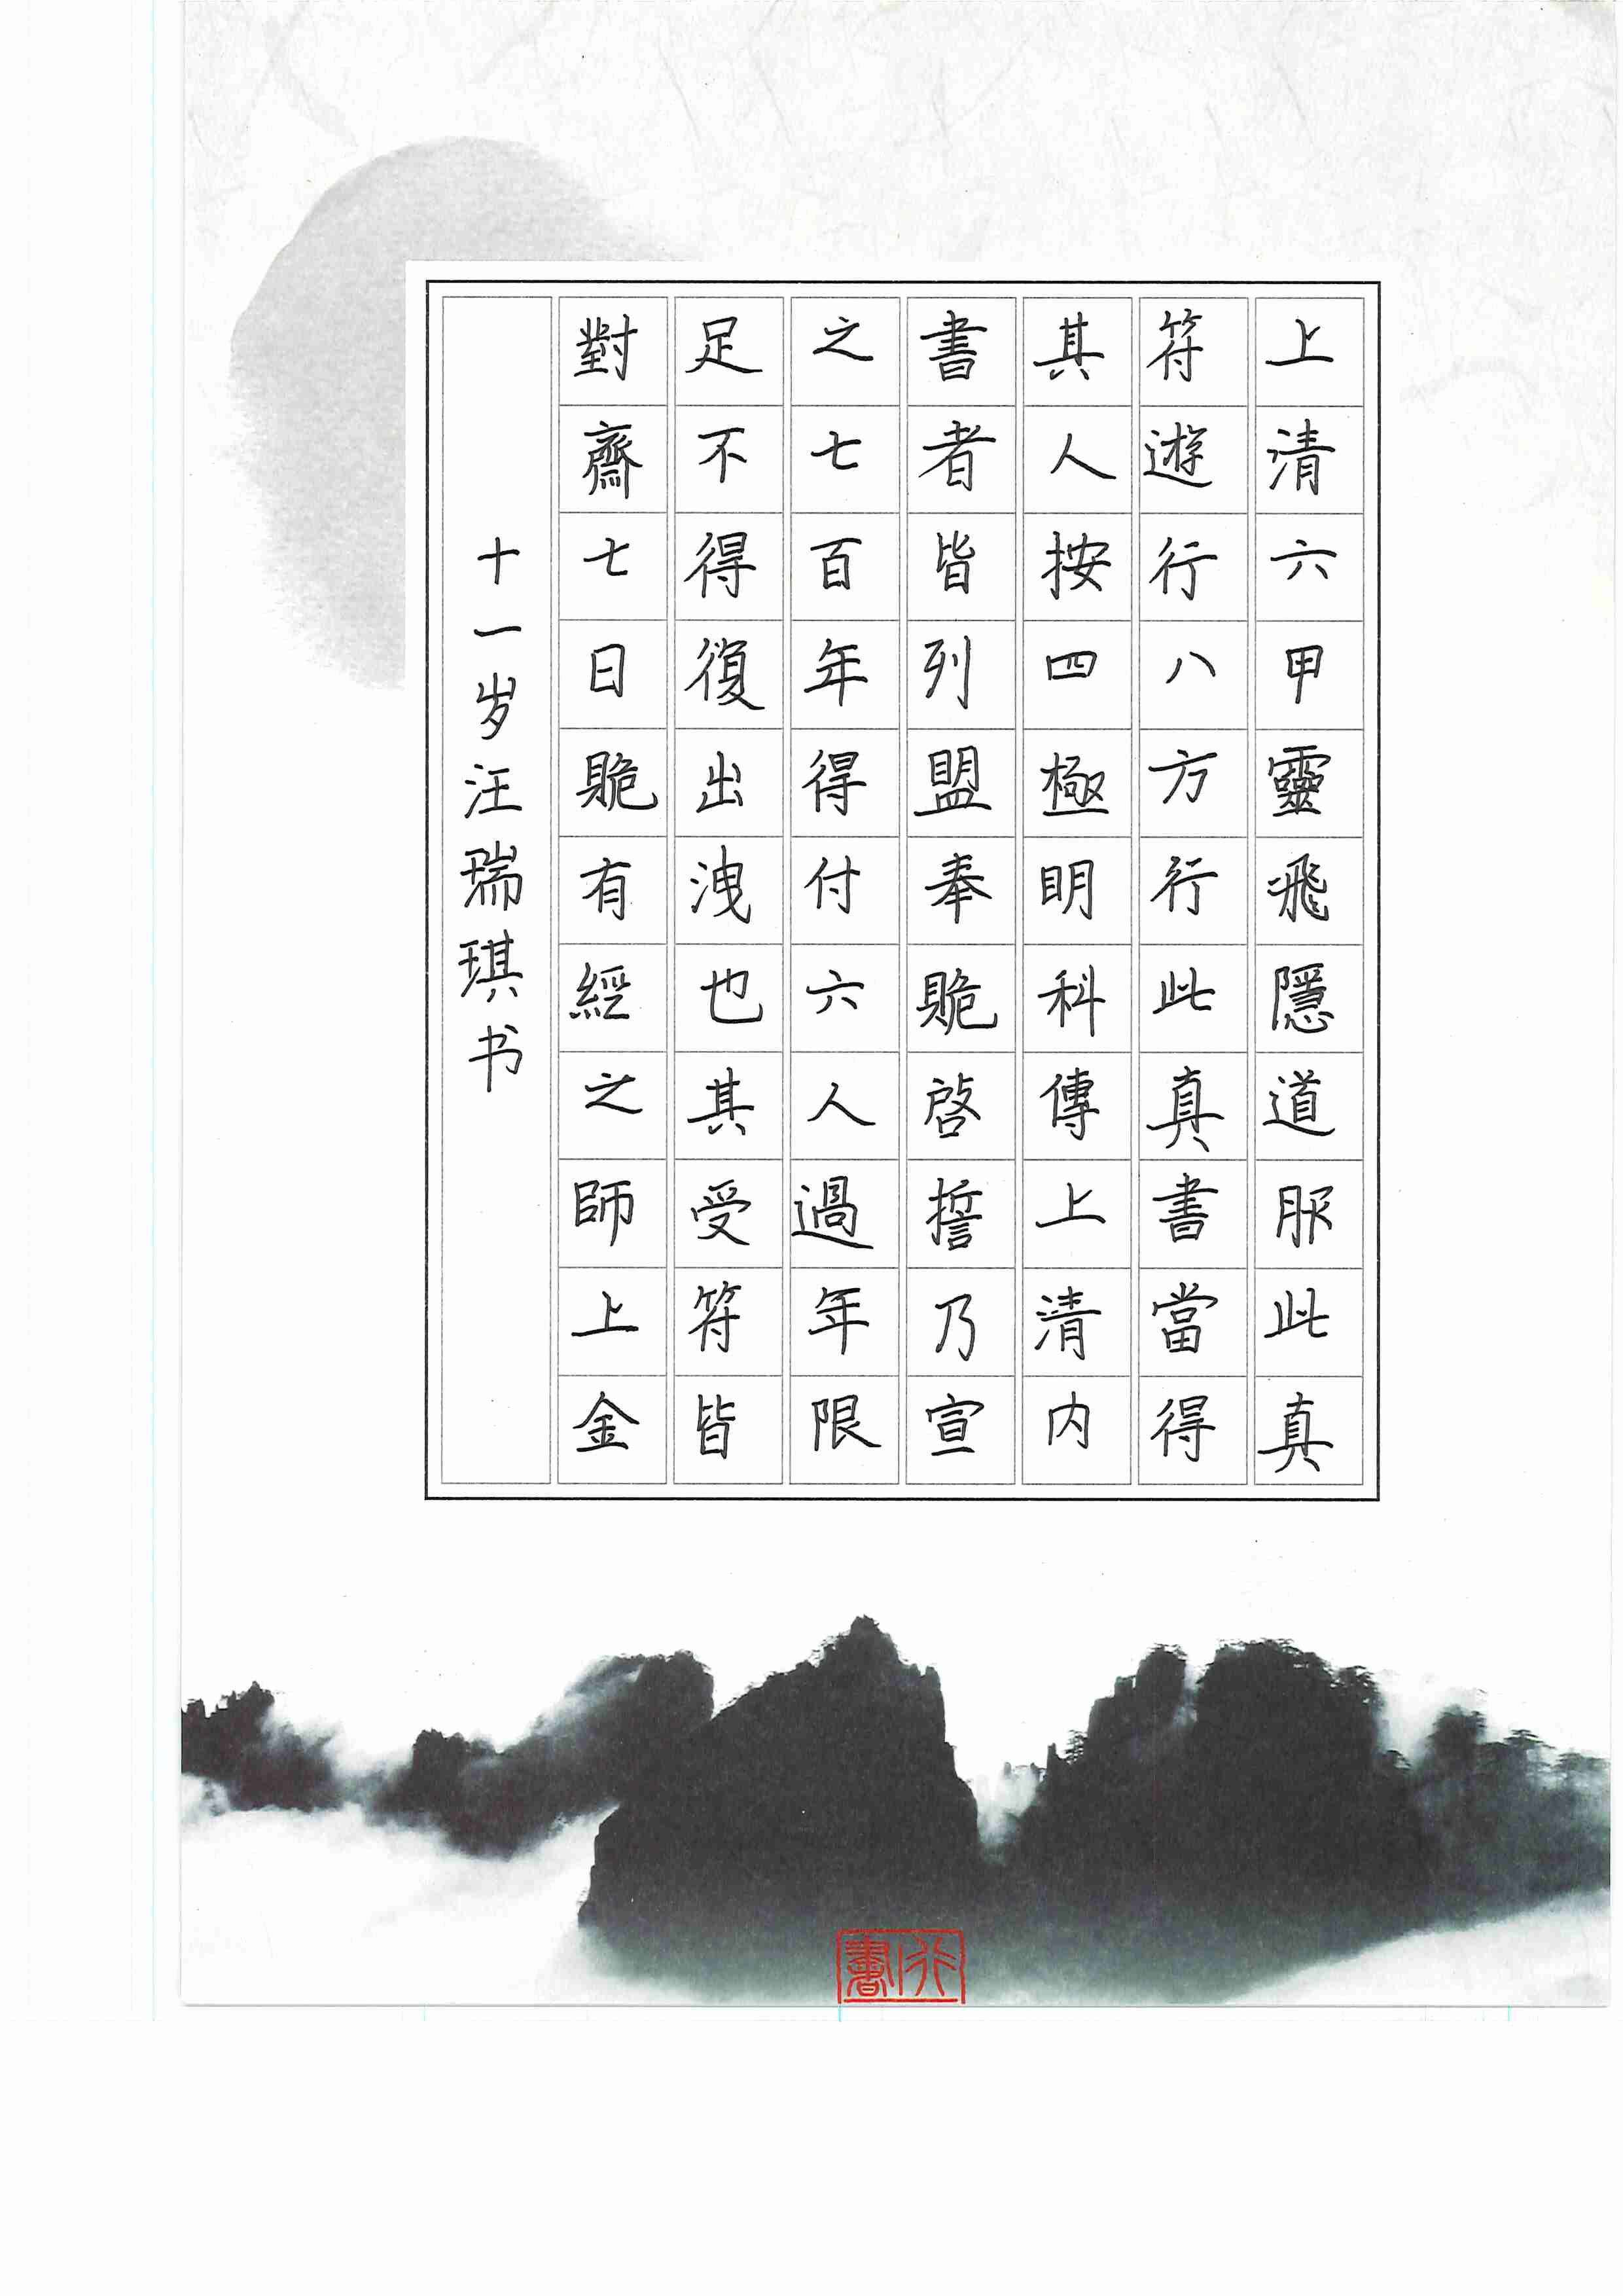 上清六甲靈飛隱道服此真
符遊行八方行此真書當得
其人按四極明科傳上清内
書者皆列盟奉賝啓誓乃宣
之七百年得付六人過年限
足不得復出洩也其受符皆
對齋七日賝有經之師上金
十一岁汪瑞琪书